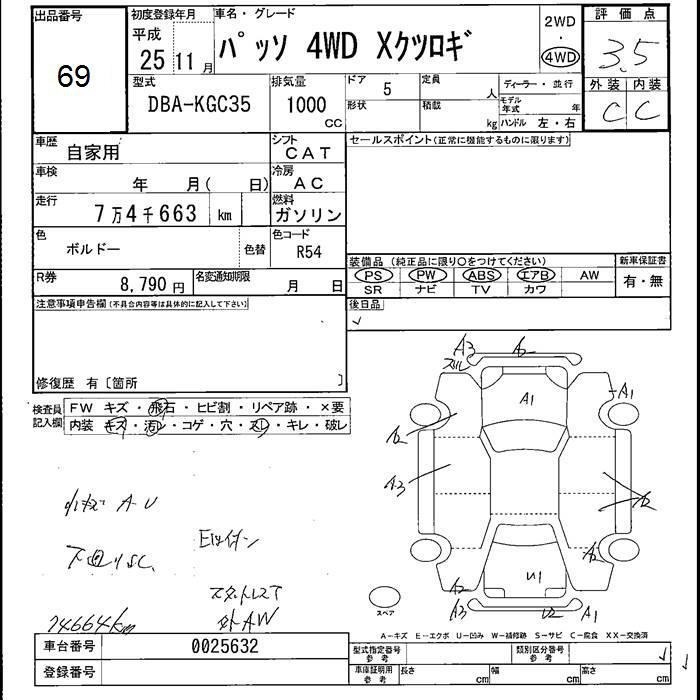 出品番号
69
初度登録年月
平成
25 11 月
車名・グレード
パッソ 4WD Xクツロギ
2WD
・
4WD
評価点
3.5
外装 内装
C C
型式
DBA-KGC35
排気量
1000
CC
ドア 5
形状
定員 人
積載 kg
ディーラー・並行
モデル年式 年
ハンドル 左・右
車歴 自家用
シフト
CAT
車検 年 月( 日)
冷房
AC
走行 7万4千663 km
燃料
ガソリン
色 ボルドー 色替
色コード
R54
R券 8,790 円
名変通知期限 月 日
セールスポイント(正常に機能するものに限ります)
装備品 (純正品に限り○をつけてください)
PS PW ABS エアB AW
SR ナビ TV カワ
新車保証書
有・無
後日品
注意事項申告欄(不具合内容等は具体的に記入して下さい)
修復歴 有〔箇所 〕
検査員記入欄
FW キズ・飛石・ヒビ割・リペア跡・×要
内装 キズ・汚レ・コゲ・穴・スレ・キレ・破レ
小キズ A-U
下回りSC
74664km
スタットレスT
外AW
A3
スリ
A2
A1
A1
A2
A3
A2
U1
A2
A3
U2
A1
スペア
A-キズ E-エクボ U-凹み W-補修跡 S-サビ C-腐食 XX-交換済
車台番号 0025632
登録番号
型式指定番号
参考
類別区分番号
参考
車庫証明用
参考
長さ cm 幅 cm 高さ cm